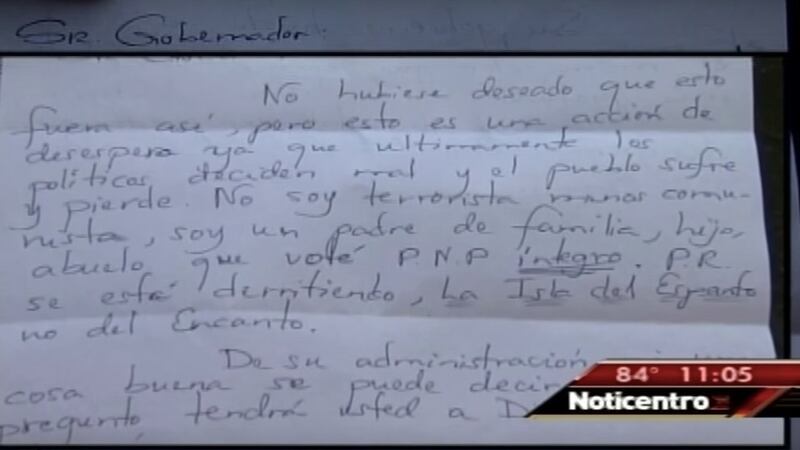 Sr. Gobernador:
No hubiese deseado que esto
fuera así, pero esto es una acción de
desespero ya que ultimamente los
políticos deciden mal y el pueblo sufre
y pierde. No soy terrorista menos comu-
nista, soy un padre de familia, hijo,
abuelo que voté P.N.P íntegro. P.R.
se está derritiendo, La Isla del Espanto
no del Encanto.
De su administración
cosa buena se puede decir
pregunto, tendrá usted a
84° 11:05
Noticentro